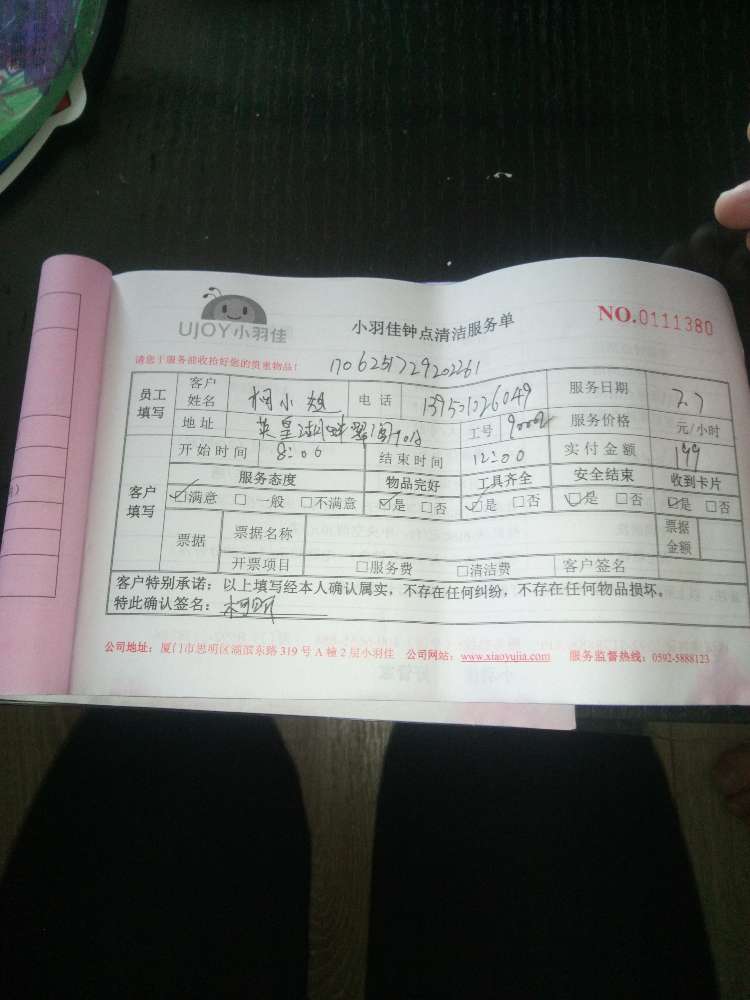 UJOY小羽佳
小羽佳钟点清洁服务单
NO.0111380
请您于服务前收拾好您的贵重物品！
1706251729202261
员工填写 客户姓名 柯小 电话 服务日期 2.7
地址 工号 服务价格 元/小时
客户填写 开始时间 8:00 结束时间 12:00 实付金额 199
服务态度 物品完好 工具齐全 安全结束 收到卡片
☑满意 □一般 □不满意 ☑是 □否 ☑是 □否 ☑是 □否 ☑是 □否
票据 票据名称 票据金额
开票项目 □服务费 □清洁费 客户签名
客户特别承诺：以上填写经本人确认属实，不存在任何纠纷，不存在任何物品损坏。
特此确认签名：
公司地址：厦门市思明区浦滨东路319号A幢2层小羽佳 公司网站：www.xiaoyujia.com 服务监督热线：0592-5888123